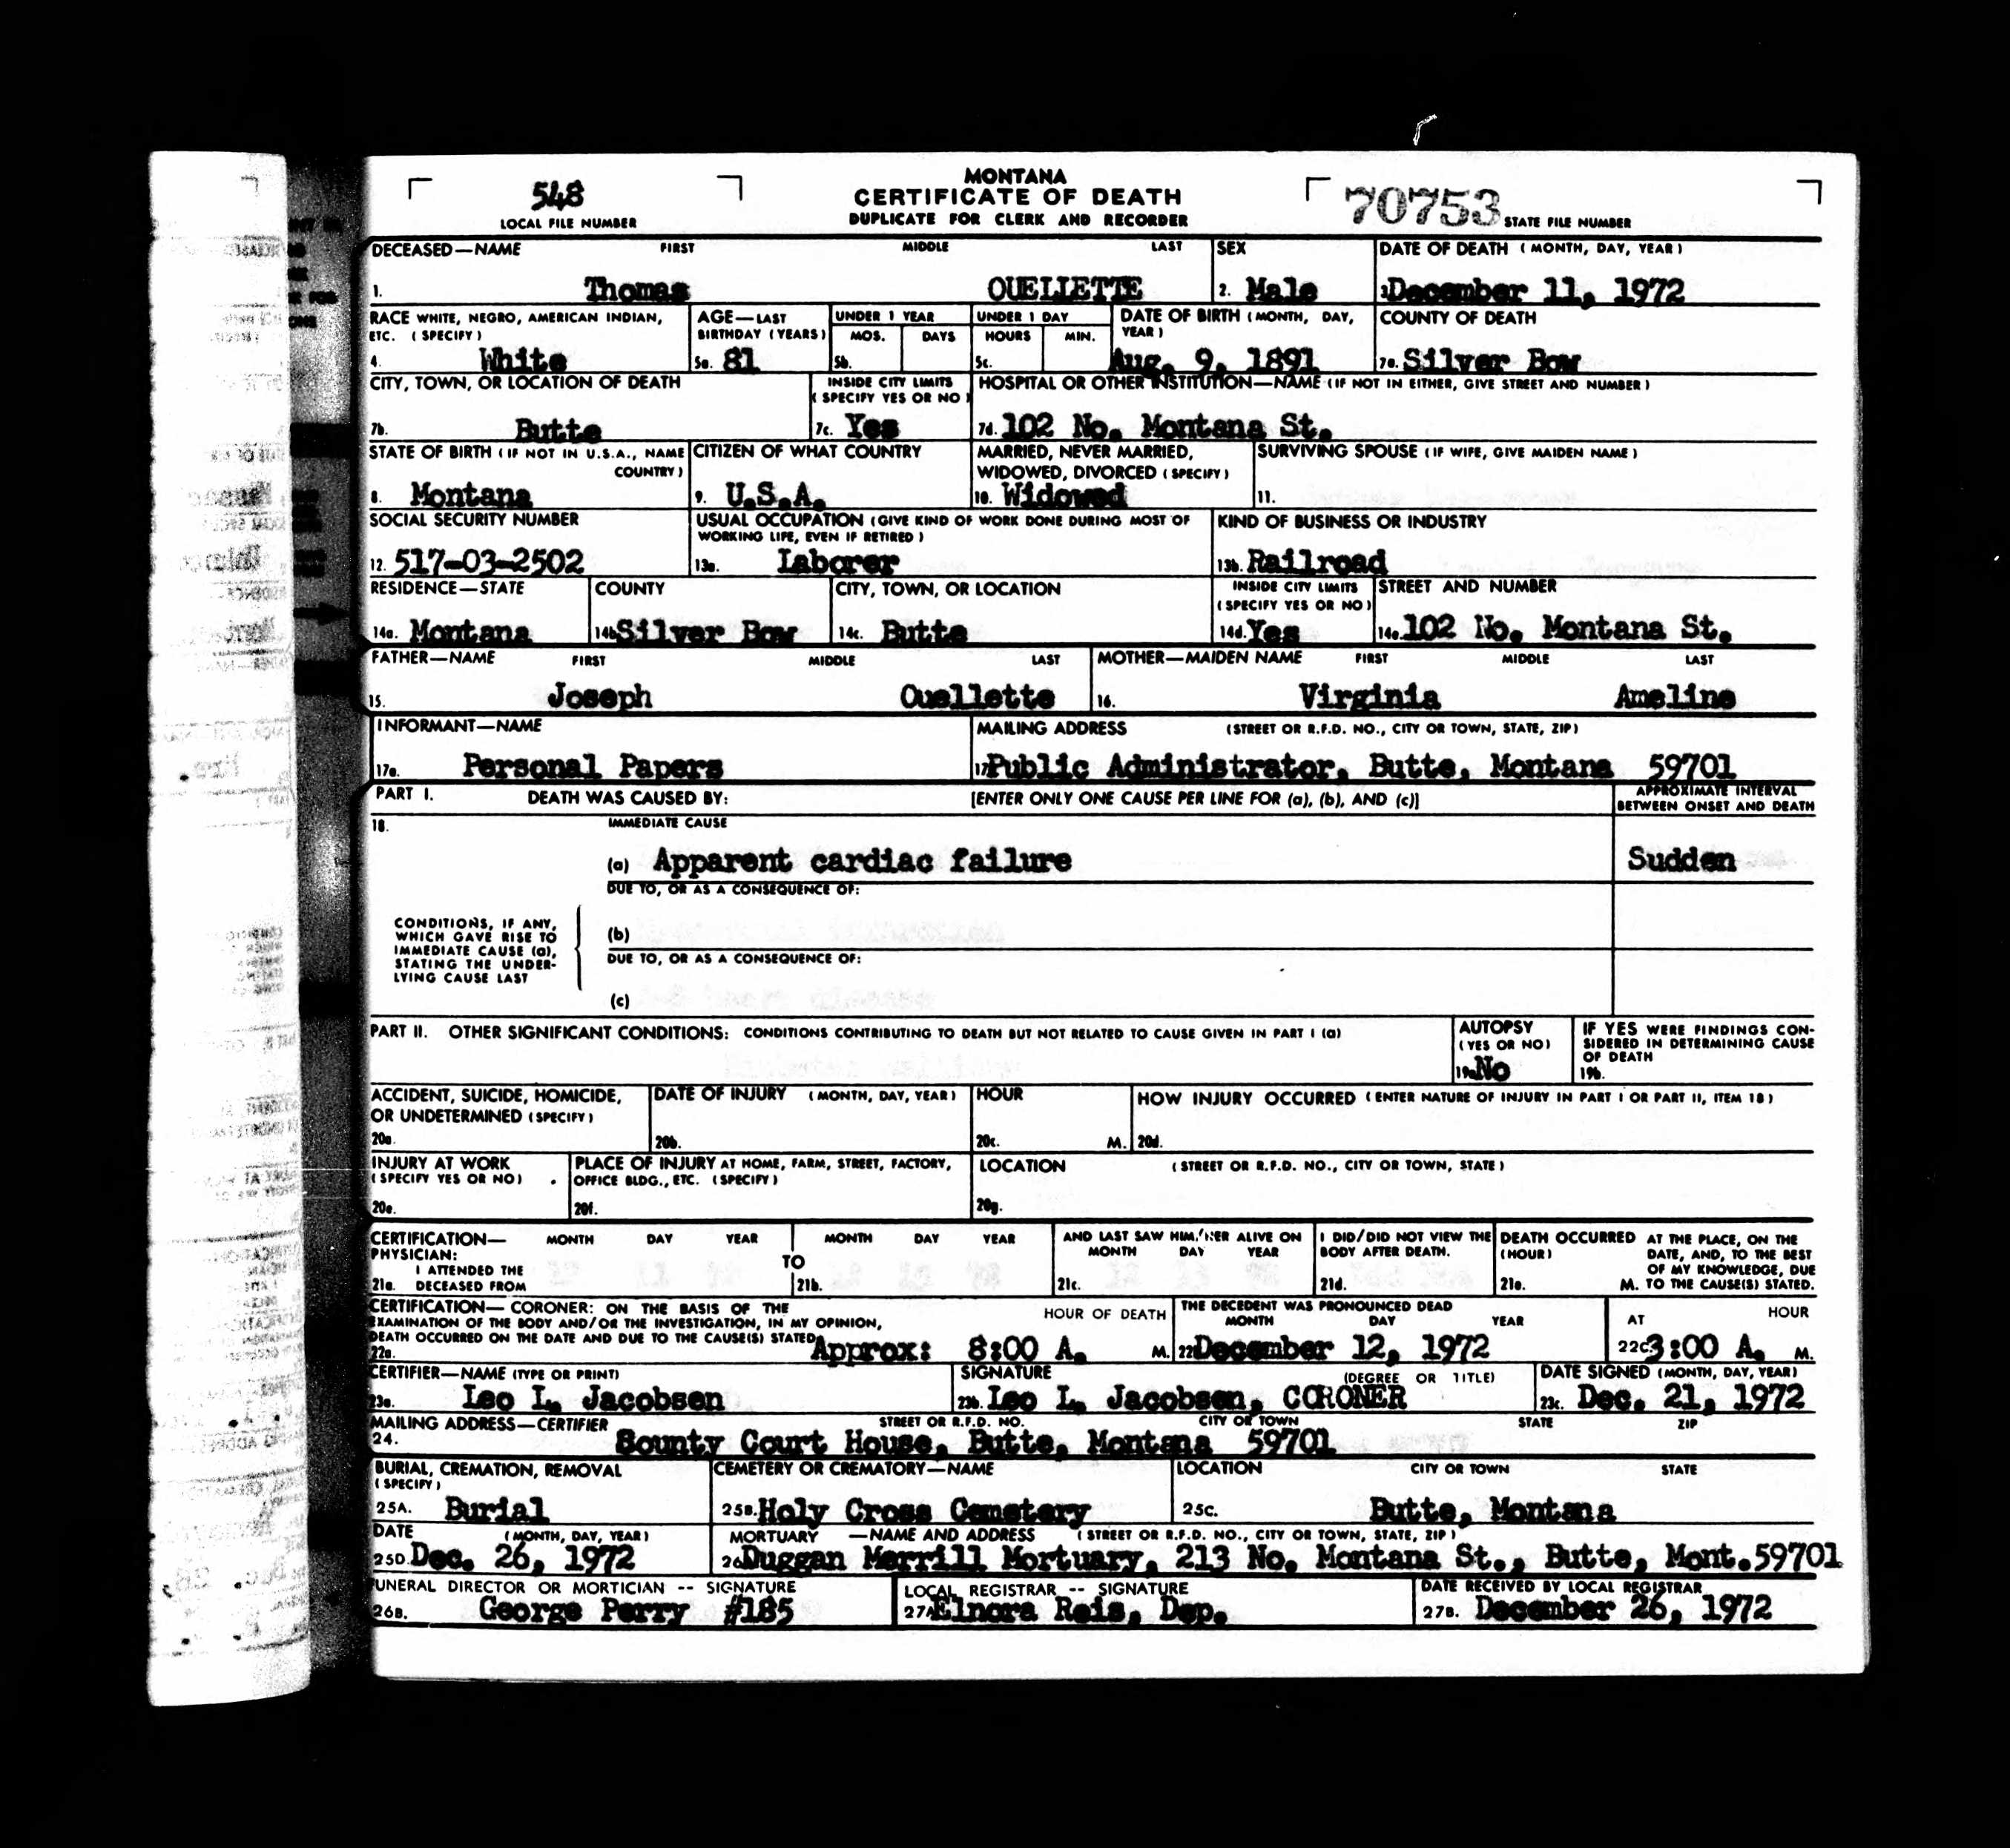 MONTANA
548 CERTIFICATE OF DEATH 70753
LOCAL FILE NUMBER DUPLICATE FOR CLERK AND RECORDER STATE FILE NUMBER
DECEASED—NAME FIRST MIDDLE LAST SEX DATE OF DEATH (MONTH, DAY, YEAR)
1. Thomas OUELLETTE 2. Male December 11, 1972
RACE WHITE, NEGRO, AMERICAN INDIAN, AGE—LAST UNDER 1 YEAR UNDER 1 DAY DATE OF BIRTH (MONTH, DAY, COUNTY OF DEATH
ETC. (SPECIFY) BIRTHDAY (YEARS) MOS. DAYS HOURS MIN. YEAR)
4. White 5a. 81 5b. 5c. Aug. 9, 1891 7a. Silver Bow
CITY, TOWN, OR LOCATION OF DEATH INSIDE CITY LIMITS HOSPITAL OR OTHER INSTITUTION—NAME (IF NOT IN EITHER, GIVE STREET AND NUMBER)
(SPECIFY YES OR NO)
7b. Butte 7c. Yes 7d. 102 No. Montana St.
STATE OF BIRTH (IF NOT IN U.S.A., NAME CITIZEN OF WHAT COUNTRY MARRIED, NEVER MARRIED, SURVIVING SPOUSE (IF WIFE, GIVE MAIDEN NAME)
COUNTRY) WIDOWED, DIVORCED (SPECIFY)
8. Montana 9. U.S.A. 10. Widowed 11.
SOCIAL SECURITY NUMBER USUAL OCCUPATION (GIVE KIND OF WORK DONE DURING MOST OF KIND OF BUSINESS OR INDUSTRY
WORKING LIFE, EVEN IF RETIRED)
12. 517-03-2502 13a. Laborer 13b. Railroad
RESIDENCE—STATE COUNTY CITY, TOWN, OR LOCATION INSIDE CITY LIMITS STREET AND NUMBER
(SPECIFY YES OR NO)
14a. Montana 14b. Silver Bow 14c. Butte 14d. Yes 14e. 102 No. Montana St.
FATHER—NAME FIRST MIDDLE LAST MOTHER—MAIDEN NAME FIRST MIDDLE LAST
15. Joseph Ouellette 16. Virginia Ameline
INFORMANT—NAME MAILING ADDRESS (STREET OR R.F.D. NO., CITY OR TOWN, STATE, ZIP)
17a. Personal Papers Public Administrator, Butte, Montana 59701
PART I. DEATH WAS CAUSED BY: [ENTER ONLY ONE CAUSE PER LINE FOR (a), (b), AND (c)] APPROXIMATE INTERVAL
BETWEEN ONSET AND DEATH
18. IMMEDIATE CAUSE
(a) Apparent cardiac failure Sudden
DUE TO, OR AS A CONSEQUENCE OF:
CONDITIONS, IF ANY,
WHICH GAVE RISE TO (b)
IMMEDIATE CAUSE (a),
STATING THE UNDER- DUE TO, OR AS A CONSEQUENCE OF:
LYING CAUSE LAST
(c)
PART II. OTHER SIGNIFICANT CONDITIONS: CONDITIONS CONTRIBUTING TO DEATH BUT NOT RELATED TO CAUSE GIVEN IN PART I (a) AUTOPSY IF YES WERE FINDINGS CON-
(YES OR NO) SIDERED IN DETERMINING CAUSE
OF DEATH
19a. No 19b.
ACCIDENT, SUICIDE, HOMICIDE, DATE OF INJURY (MONTH, DAY, YEAR) HOUR HOW INJURY OCCURRED (ENTER NATURE OF INJURY IN PART I OR PART II, ITEM 18)
OR UNDETERMINED (SPECIFY)
20a. 20b. 20c. M. 20d.
INJURY AT WORK PLACE OF INJURY AT HOME, FARM, STREET, FACTORY, LOCATION (STREET OR R.F.D. NO., CITY OR TOWN, STATE)
(SPECIFY YES OR NO) OFFICE BLDG., ETC. (SPECIFY)
20e. 20f. 20g.
CERTIFICATION— MONTH DAY YEAR MONTH DAY YEAR AND LAST SAW HIM/HER ALIVE ON I DID/DID NOT VIEW THE DEATH OCCURRED AT THE PLACE, ON THE
PHYSICIAN: TO MONTH DAY YEAR BODY AFTER DEATH. (HOUR) DATE, AND, TO THE BEST
I ATTENDED THE OF MY KNOWLEDGE, DUE
21a. DECEASED FROM 21b. 21c. 21d. 21e. M. TO THE CAUSE(S) STATED.
CERTIFICATION— CORONER: ON THE BASIS OF THE HOUR OF DEATH THE DECEDENT WAS PRONOUNCED DEAD HOUR
EXAMINATION OF THE BODY AND/OR THE INVESTIGATION, IN MY OPINION, MONTH DAY YEAR AT
DEATH OCCURRED ON THE DATE AND DUE TO THE CAUSE(S) STATED
22a. Approx: 8:00 A. M. December 12, 1972 22c. 3:00 A. M.
CERTIFIER—NAME (TYPE OR PRINT) SIGNATURE (DEGREE OR TITLE) DATE SIGNED (MONTH, DAY, YEAR)
23a. Leo L. Jacobsen 23b. Leo L. Jacobsen, CORONER 23c. Dec. 21, 1972
MAILING ADDRESS—CERTIFIER STREET OR R.F.D. NO. CITY OR TOWN STATE ZIP
24. Sounty Court House, Butte, Montana 59701
BURIAL, CREMATION, REMOVAL CEMETERY OR CREMATORY—NAME LOCATION CITY OR TOWN STATE
(SPECIFY)
25A. Burial 25B. Holy Cross Cemetery 25C. Butte, Montana
DATE (MONTH, DAY, YEAR) MORTUARY —NAME AND ADDRESS (STREET OR R.F.D. NO., CITY OR TOWN, STATE, ZIP)
25D. Dec. 26, 1972 26 Duggan Merrill Mortuary, 213 No. Montana St., Butte, Mont. 59701
FUNERAL DIRECTOR OR MORTICIAN -- SIGNATURE LOCAL REGISTRAR -- SIGNATURE DATE RECEIVED BY LOCAL REGISTRAR
26B. George Perry #185 27A Elnora Reis, Dep. 27B. December 26, 1972